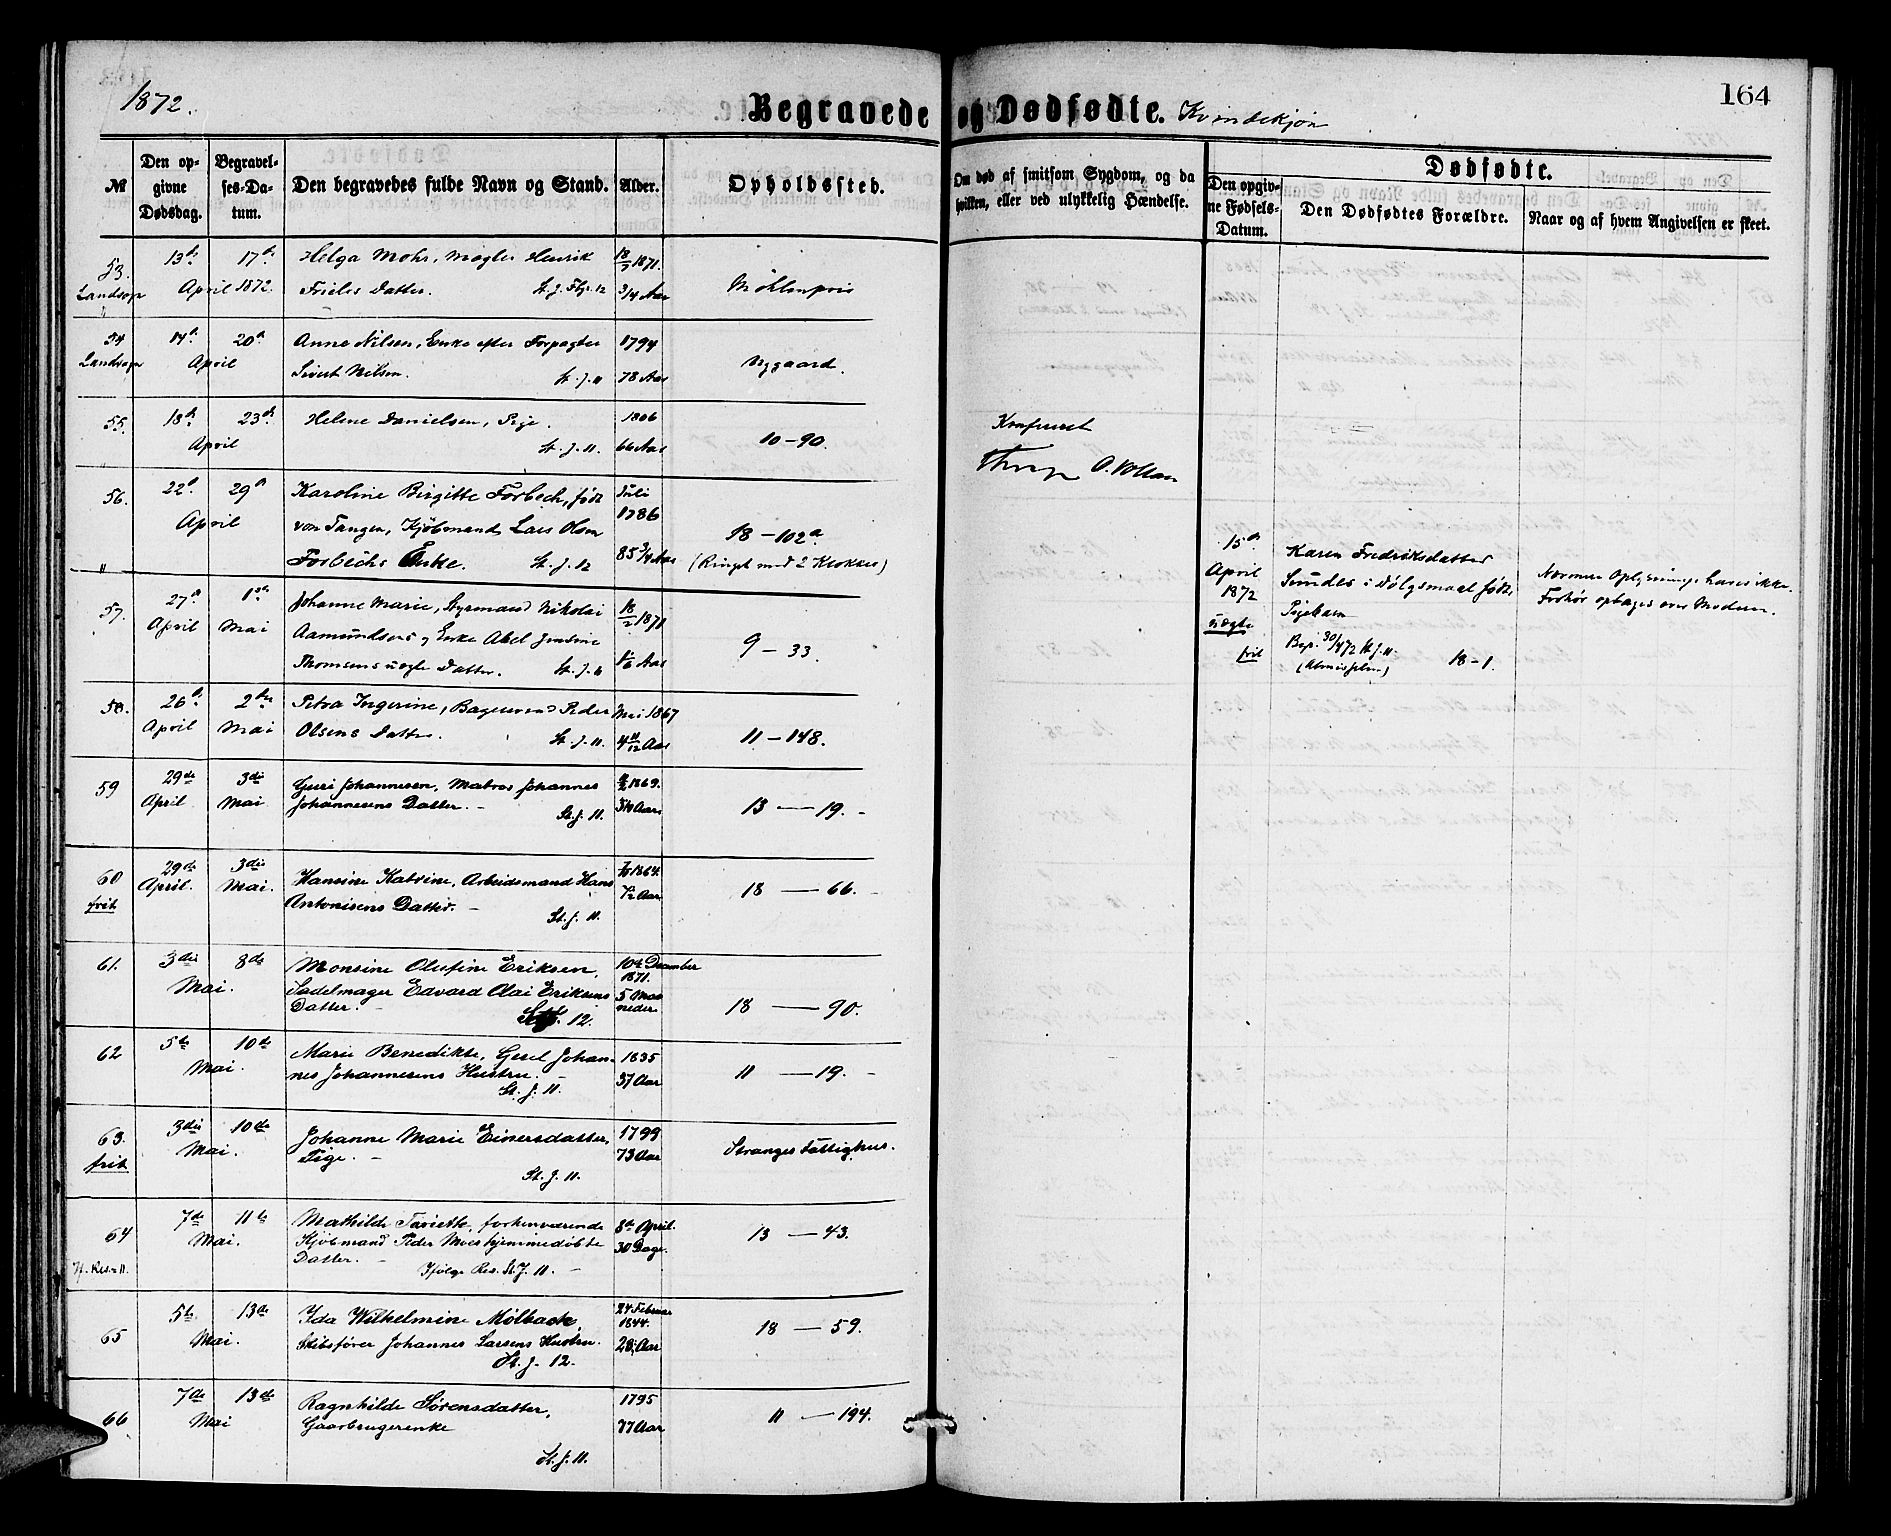 1872.
Begravede og Dødfødte. Kvindekjøn
164
№
Den opgivne Dødsdag.
Begravelses-Datum.
Den begravedes fulde Navn og Stand.
Alder.
Opholdssted.
Om død af smitsom Sygdom, og da hvilken, eller ved ulykkelig Hændelse.
Dødfødte.
Den opgivne Fødsels-Datum.
Den Dødfødtes Forældre.
Naar og af hvem Angivelsen er skeet.
53. 13de 17de Helga Mohr, Mægler Henrik 18/7 1871.
Landsogn April 1872. Frieles Datter. St. J. 12 3/4 Aar Møhlenpris
54 14de 20de Anne Nilsen, Enke efter Forpagter 1794
Landsogn April Sivert Nilsen. St. J. 11 78 Aar Nygaard.
55. 18de 23de Helene Danielsen, Pige. 1806
April St. J. 11. 66 Aar 10-90.
Konfereret
O. Vollan
56. 22de 29de Karoline Birgitte Forbech, født Juli
April von Tangen, Kjøbmand Lars Olsen 1786 18-102a
Forbechs Enke. St. J. 12 85 3/4 Aar (Ringet med 2 Klokker)
57. 27de 1ste Johanne Marie, Styrmand Nikolai 18/2 1871
April Mai Aamundsens og Enke Abel Jensine
Thomsens uægte Datter. St. J. 11 1 1/6 Aar 9-33.
58. 26de 2den Petra Ingerine, Bagersvend Peder Mai 1867
April Mai Olsens Datter. St. J. 11. 4 11/12 Aar 11-148.
59 29de 3die Guri Johannesen, Matros Johannes 1869.
April Mai Johannesens Datter. St. J. 11. Aar 13-19.
60 29de 3die Hansine Katrine, Arbeidsmand Hans 1864.
frit April. Mai. Antonisens Datter. St. J. 11. Aar 18-66.
61. 3die 8de Monsine Olufine Eriksen, 10de December 1871.
Mai. Sadelmager Edvard Olai Eriksens 5 Maaneder
Datter. St. J. 12. 18-90.
62 5te 10de Marie Benedikte, Gesel Johan- 1835
Mai. nes Johannesens Hustru. 37 Aar 11-19.
St. J. 11.
63. 3die 10de Johanne Marie Einersdatter, 1799
frit Mai. Pige. 73 Aar Stranges Fattighus.
St. J. 11.
64 7de 11te Mathilde Sariette, forhenværende 8de April.
Mai. Kjøbmand Peder Moes hjemmedøbte 30 Dage. 13-43.
Datter.
If. Res. 11. Ifølge Res. St. J. 11.
65 5te 13de Ida Wilhelmine Mølbach, 24 Februar 1844.
Mai. Skibsfører Johannes Larsens Hustru. 28 Aar 18-59.
St. J. 12.
66 7de 13de Ragnhilde Sørensdatter, 1795
Mai Gaardbrugerenke 77 Aar 11-194.
St. J. 11.
15de April 1872 uægte frit
Karen Fredriksdatter
Sundes i Dølgsmaal fødte
Pigebarn
Begr. 30/4 72 St. J. 11.
18-1.
Nærmere Oplysninger haves ikke.
Forhør optages over Moderen.